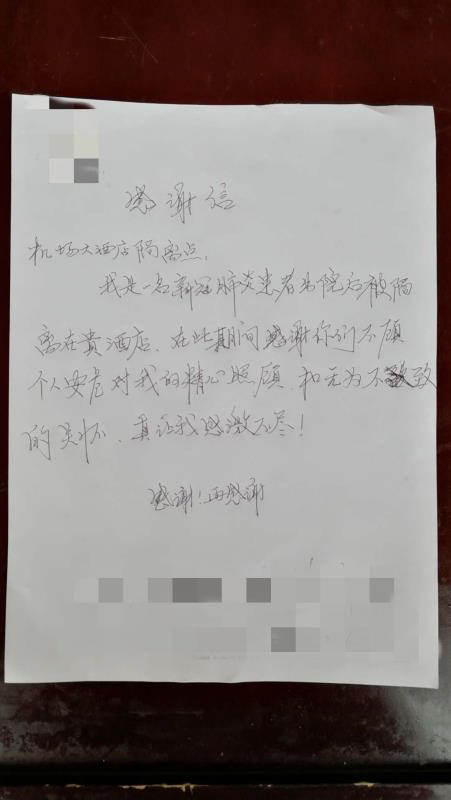 感谢信
机场大酒店隔离点.
我是一名新冠肺炎患者出院后被隔
离在贵酒店、在此期间感谢你们不顾
个人安危对我的精心照顾、和无为不致
的关怀、真让我感激不尽!
感谢!再感谢